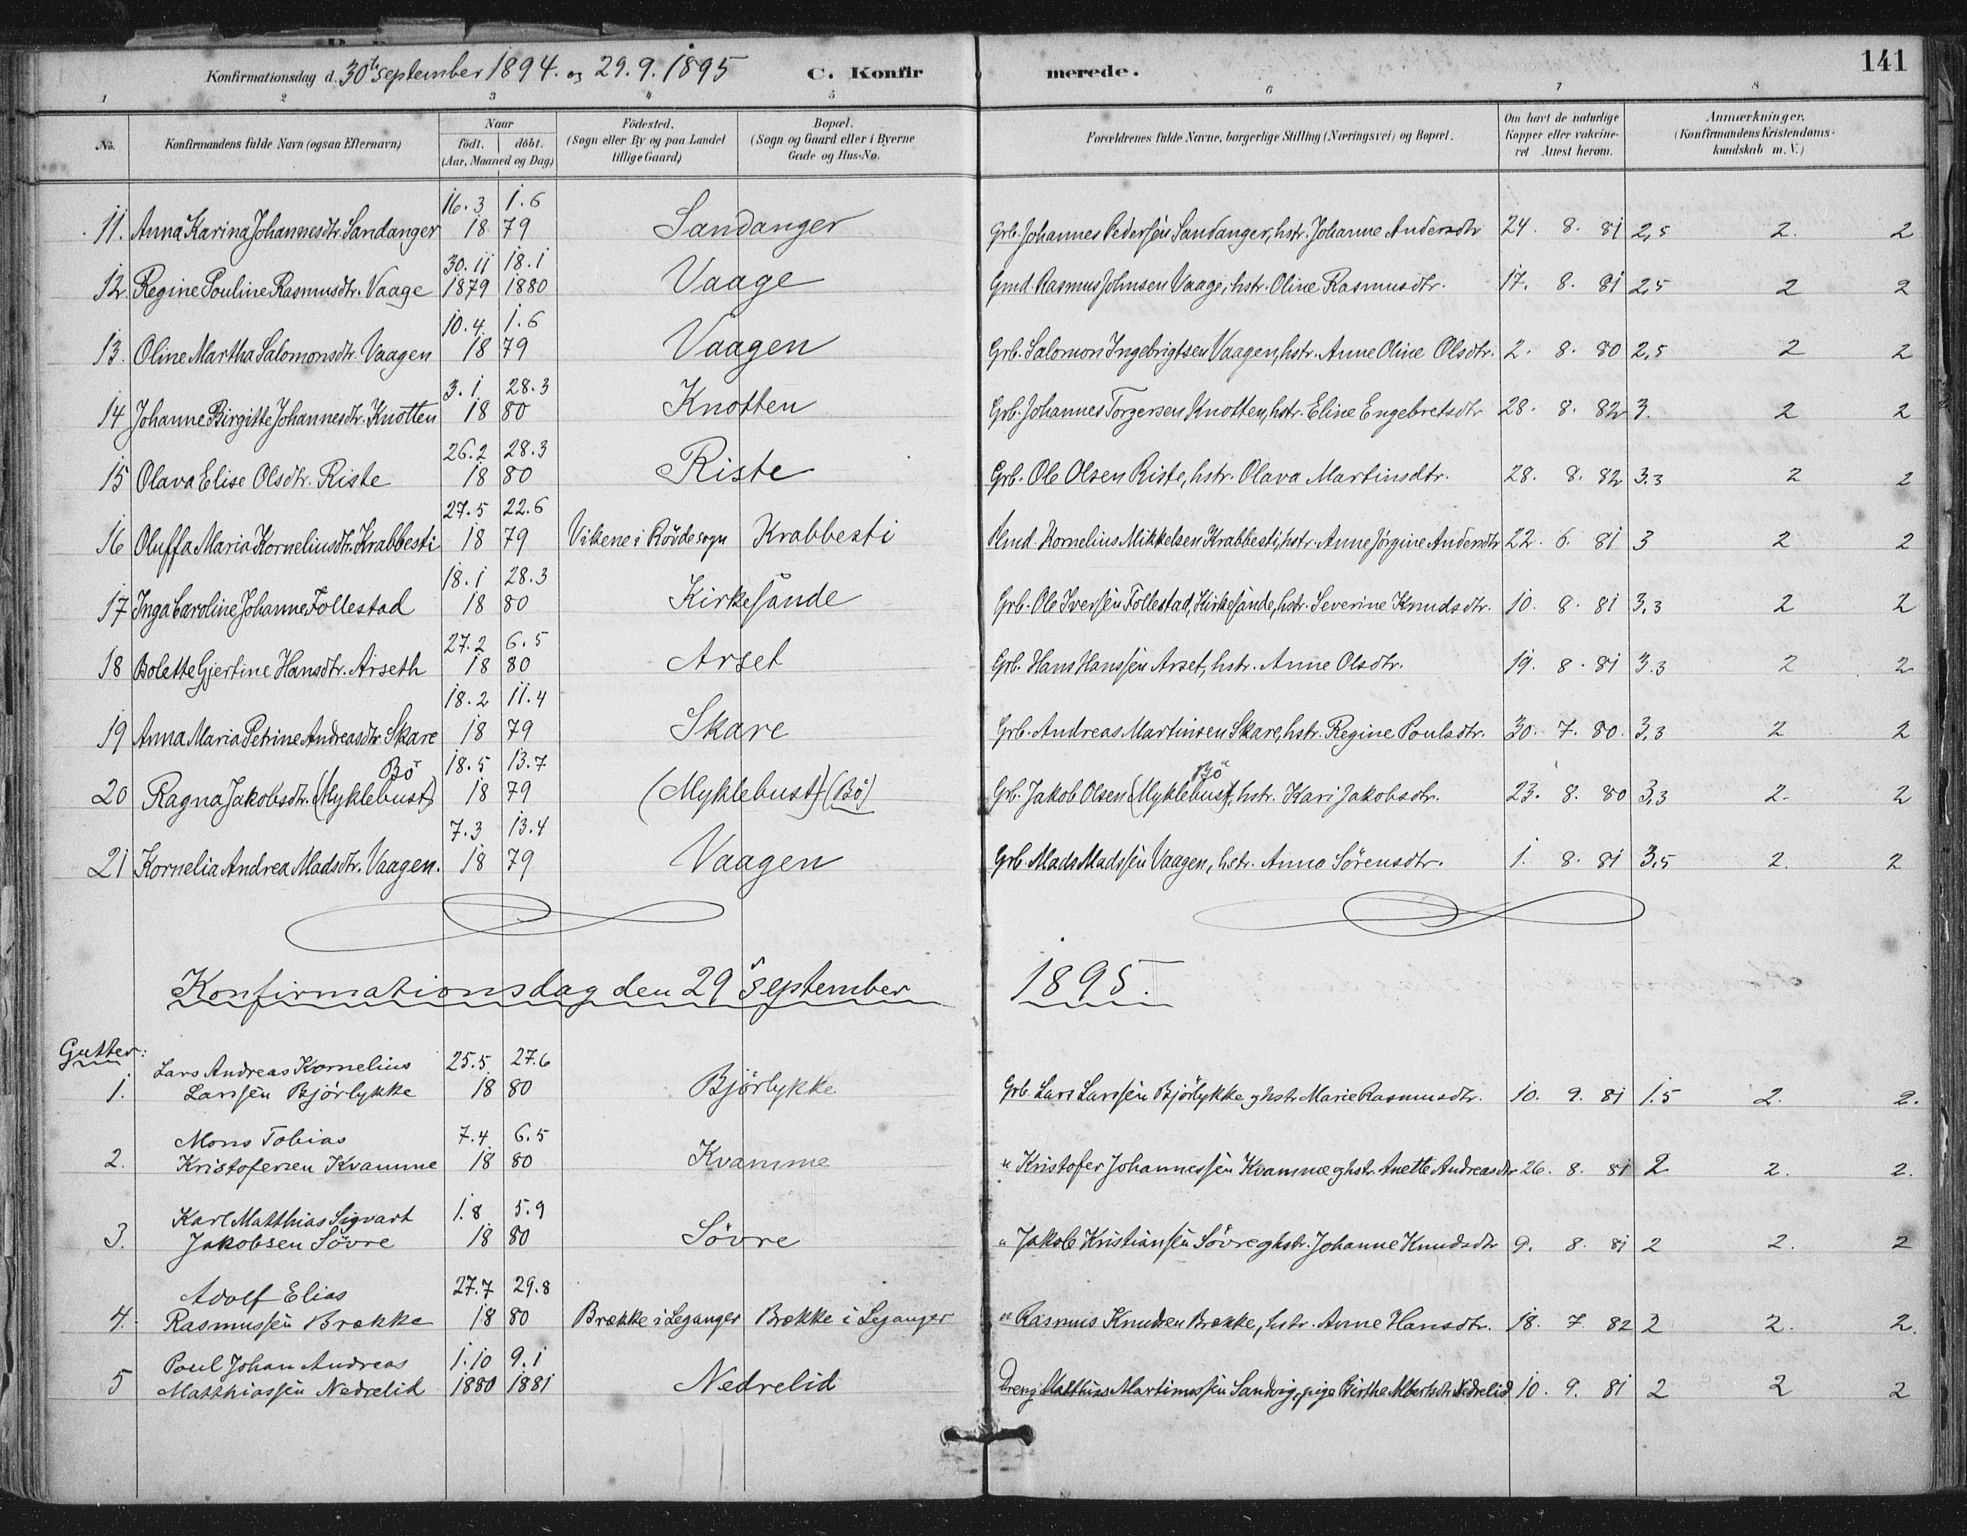 141
Konfirmationsdag d. 30te september 1894. og 29.9.1895 C. Konfirmerede.
1 2 3 4 5 6 7 8
No. Konfirmandens fulde Navn (ogsaa Efternavn) Naar födt. döbt. (Aar, Maaned og Dag) Födested. (Sogn eller By og paa Landet tillige Gaard) Bopæl. (Sogn og Gaard eller i Byerne Gade og Hus-No. Forældrenes fulde Navne, borgerlige Stilling (Næringsvei) og Bopæl. Om havt de naturlige Kopper eller vakcineret Attest herom. Anmærkninger. (Konfirmandens Kristendomskundskab m. V.)
16.3 1.6
11. Anna Karina Johannesdtr. Sandanger 18 79 Sandanger Grb. Johannes Pedersen Sandanger, hstr. Johanne Andersdtr 24. 8. 81 2,5 2. 2
30.11 18.1
12. Regine Pouline Rasmusdtr. Vaage 1879 1880 Vaage Gmd. Rasmus Johnsen Vaage, hstr. Oline Rasmusdtr. 17. 8. 81 2,5 2 2
10.4. 1.6
13. Oline Martha Salomonsdtr. Vaagen 18 79 Vaagen Grb. Salomon Ingebrigtsen Vaagen, hstr. Anne Oline Olsdtr. 2. 8. 80 2,5 2 2
3.1 28.3
14 Johanne Birgitte Johannesdtr. Knotten 18 80 Knotten Grb. Johannes Torgersen Knotten, hstr. Eline Engebretsdtr 28. 8. 82 3. 2 2
26.2 28.3
15 Olava Elise Olsdtr. Riste 18 80 Riste Grb. Ole Olsen Riste, hstr. Olava Martinsdtr. 28. 8. 82 3.3 2 2
27.5 22.6
16 Oluffa Maria Korneliusdtr. Krabbesti 18 79 Vikene i Rövde sogn Krabbesti Kornelius Mikkelsen Krabbesti, hstr. Anne Jörgine Andersdtr 22. 6. 81 3 2 2
18.1 28.3
17 Inga Caroline Johanne Follestad 18 80 Kirkesånde Grb. Ole Iversen Follestad, Kirkesånde, hstr. Severine Knudsdtr. 10. 8. 81 3,3 2 2
27.2 6.5
18 Bolette Gjertine Hansdtr. Arseth 18 80 Arset Grb. Hans Hanssen Arset, hstr. Anne Olsdtr. 19. 8. 81 3.3 2 2
18.2 11.4
19 Anna Maria Petrine Andreasdtr. Skare 18 79 Skare Grb. Andreas Martinsen Skare, hstr. Regine Poulsdtr. 30. 7. 80. 3,3 2 2
Bö 18.5 13.7 Bö
20 Ragna Jakobsdtr. (Myklebust) 18 79 (Myklebust) (Bö) Grb. Jakob Olsen (Myklebust), hstr. Kari Jakobsdtr. 23. 8. 80 3,3 2. 2
7.3 13.4
21 Kornelia Andrea Madsdtr. Vaagen. 18 79 Vaagen Grb. Mads Madssen Vaagen, hstr. Anna Sörensdtr. 1. 8. 81 3,5 2. 2
Konfirmationsdag den 29 september 1895.
Gutter:
Lars Andreas Kornelius 25.5. 27.6
1. Larssen Björlykke 18 80 Björlykke Grb. Lars Larssen Björlykke og hstr Marie Rasmusdtr. 10. 9. 81 1.5 2. 2.
Mons Tobias 7.4. 6.5
2. Kristofersen Kvamme 18 80 Kvamme " Kristofer Johannessen Kvamme og hstr. Anette Andreasdtr 26. 8. 81 2 2. 2.
Karl Matthias Sigvart 1.8 5.9
3. Jakobsen Sövre 18 80 Sövre " Jakob Kristiansen Sövre og hstr. Johanne Knudsdtr 9. 8. 81 2 2. 2
Adolf Elias 27.7 29.8
4. Rasmussen Brække 18 80 Brække i Leganger Brække i Leganger " Rasmus Knudsen Brække, hstr. Anne Hansdtr. 18. 7. 82 2 2. 2.
Poul Johan Andreas 1.10 9.1
5 Matthiassen Nedrelid 1880 1881 Nedrelid Dreng Matthias Martinussen Sandvig, pige Birthe Albertsdtr. Nedrelid 10. 9. 81 2 2 2